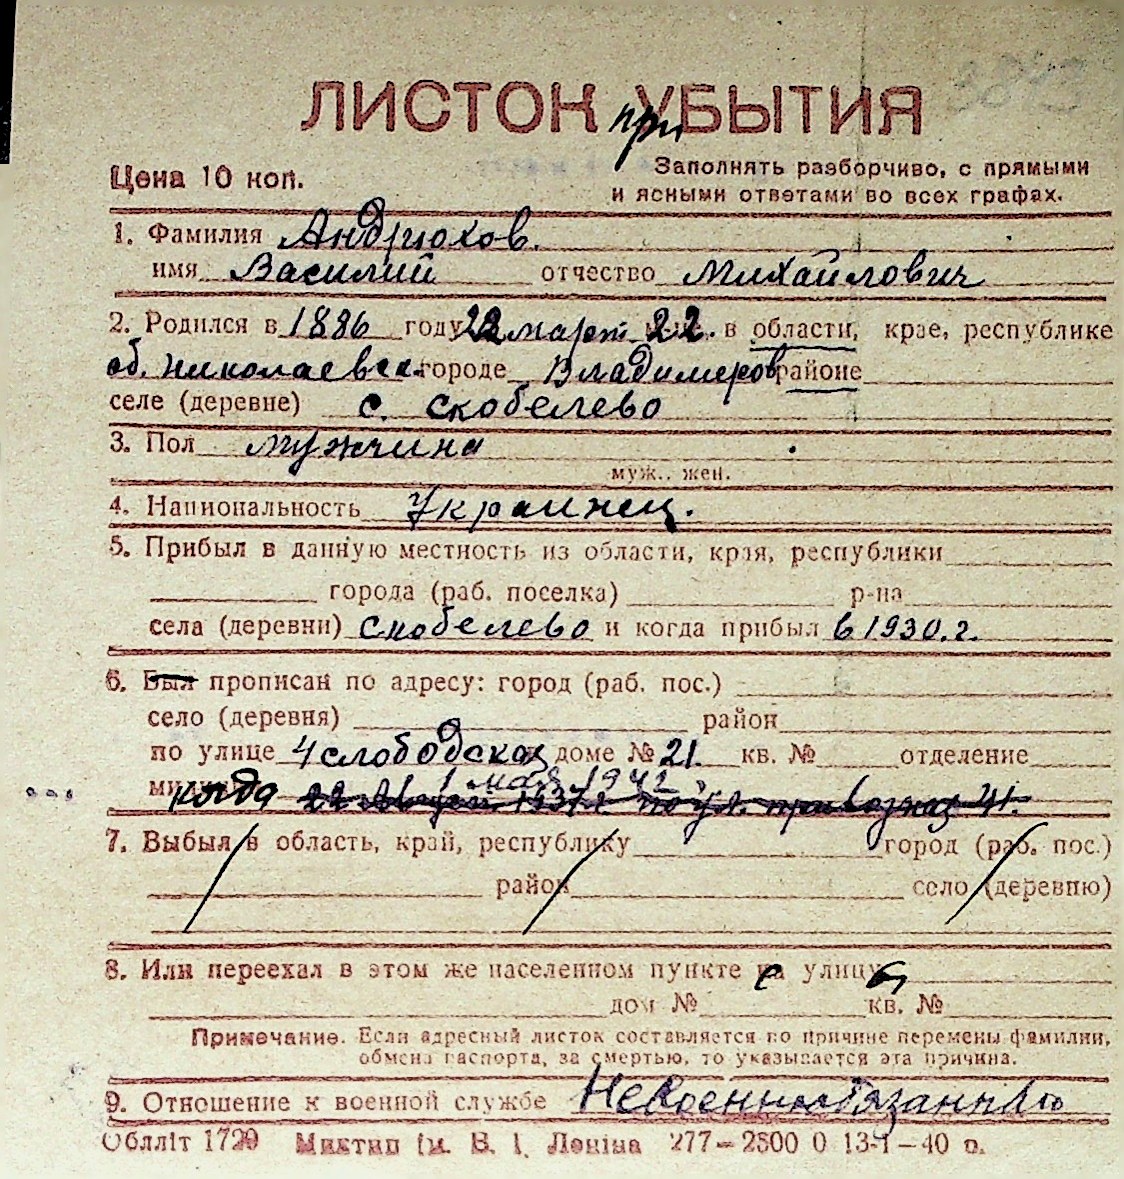 ЛИСТОК УБЫТИЯ
при
Цена 10 коп.
Заполнять разборчиво, с прямыми
и ясными ответами во всех графах.
1. Фамилия Андрюхов.
имя Василий отчество Михайлович
2. Родился в 1886 году март 22. в области, крае, республике
об. Николаевск. городе Владимиров районе
селе (деревне) с. Скобелево
3. Пол мужчина
муж., жен.
4. Национальность Украинец.
5. Прибыл в данную местность из области, края, республики
города (раб. поселка) р-на
села (деревни) Скобелево и когда прибыл в 1930.г.
6. Был прописан по адресу: город (раб. пос.)
село (деревня) район
по улице 4 слободская доме № 21. кв. № отделение
1 мая 1942
когда 22 1937 г. по ул. привозная 41.
7. Выбыл в область, край, республику город (раб. пос.)
район село (деревню)
8. Или переехал в этом же населенном пункте с улицы
дом № кв. №
Примечание. Если адресный листок составляется по причине перемены фамилии,
обмена паспорта, за смертью, то указывается эта причина.
9. Отношение к военной службе Невоеннообязанный
Обллiт 1729 Миктип iм. В. I. Ленiна 277—2500 0 13-1—40 р.